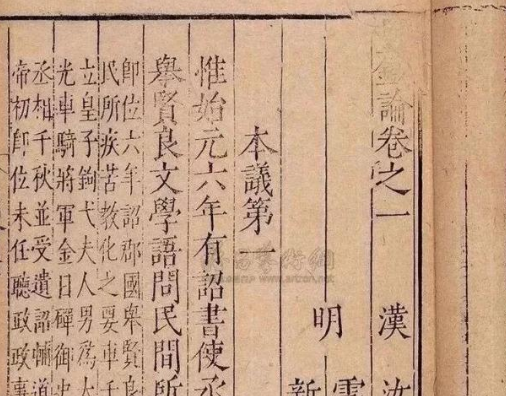 論卷之一
漢 汝
雲
明
新
本議第一
惟始元六年有詔書使丞
舉賢良文學語問民間所
即位六年詔郡國舉賢良
民所疾苦教化之要車千
立皇子鉤弋夫人男爲太
光車騎將軍金日磾御史
丞相千秋並受遺詔輔道
帝初即位未任聽政政事